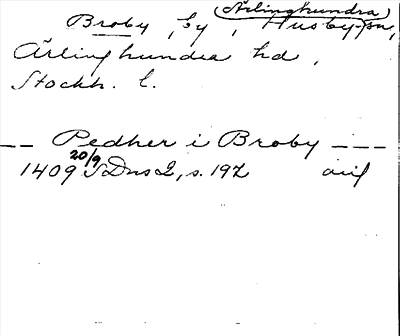 (Ärlinghundra)
Broby, by, Husby-sn,
Ärlinghundra hd,
Stockh. l.
-- Pedher i Broby ---
20/9
1409 SDns 2, s. 192 avskr